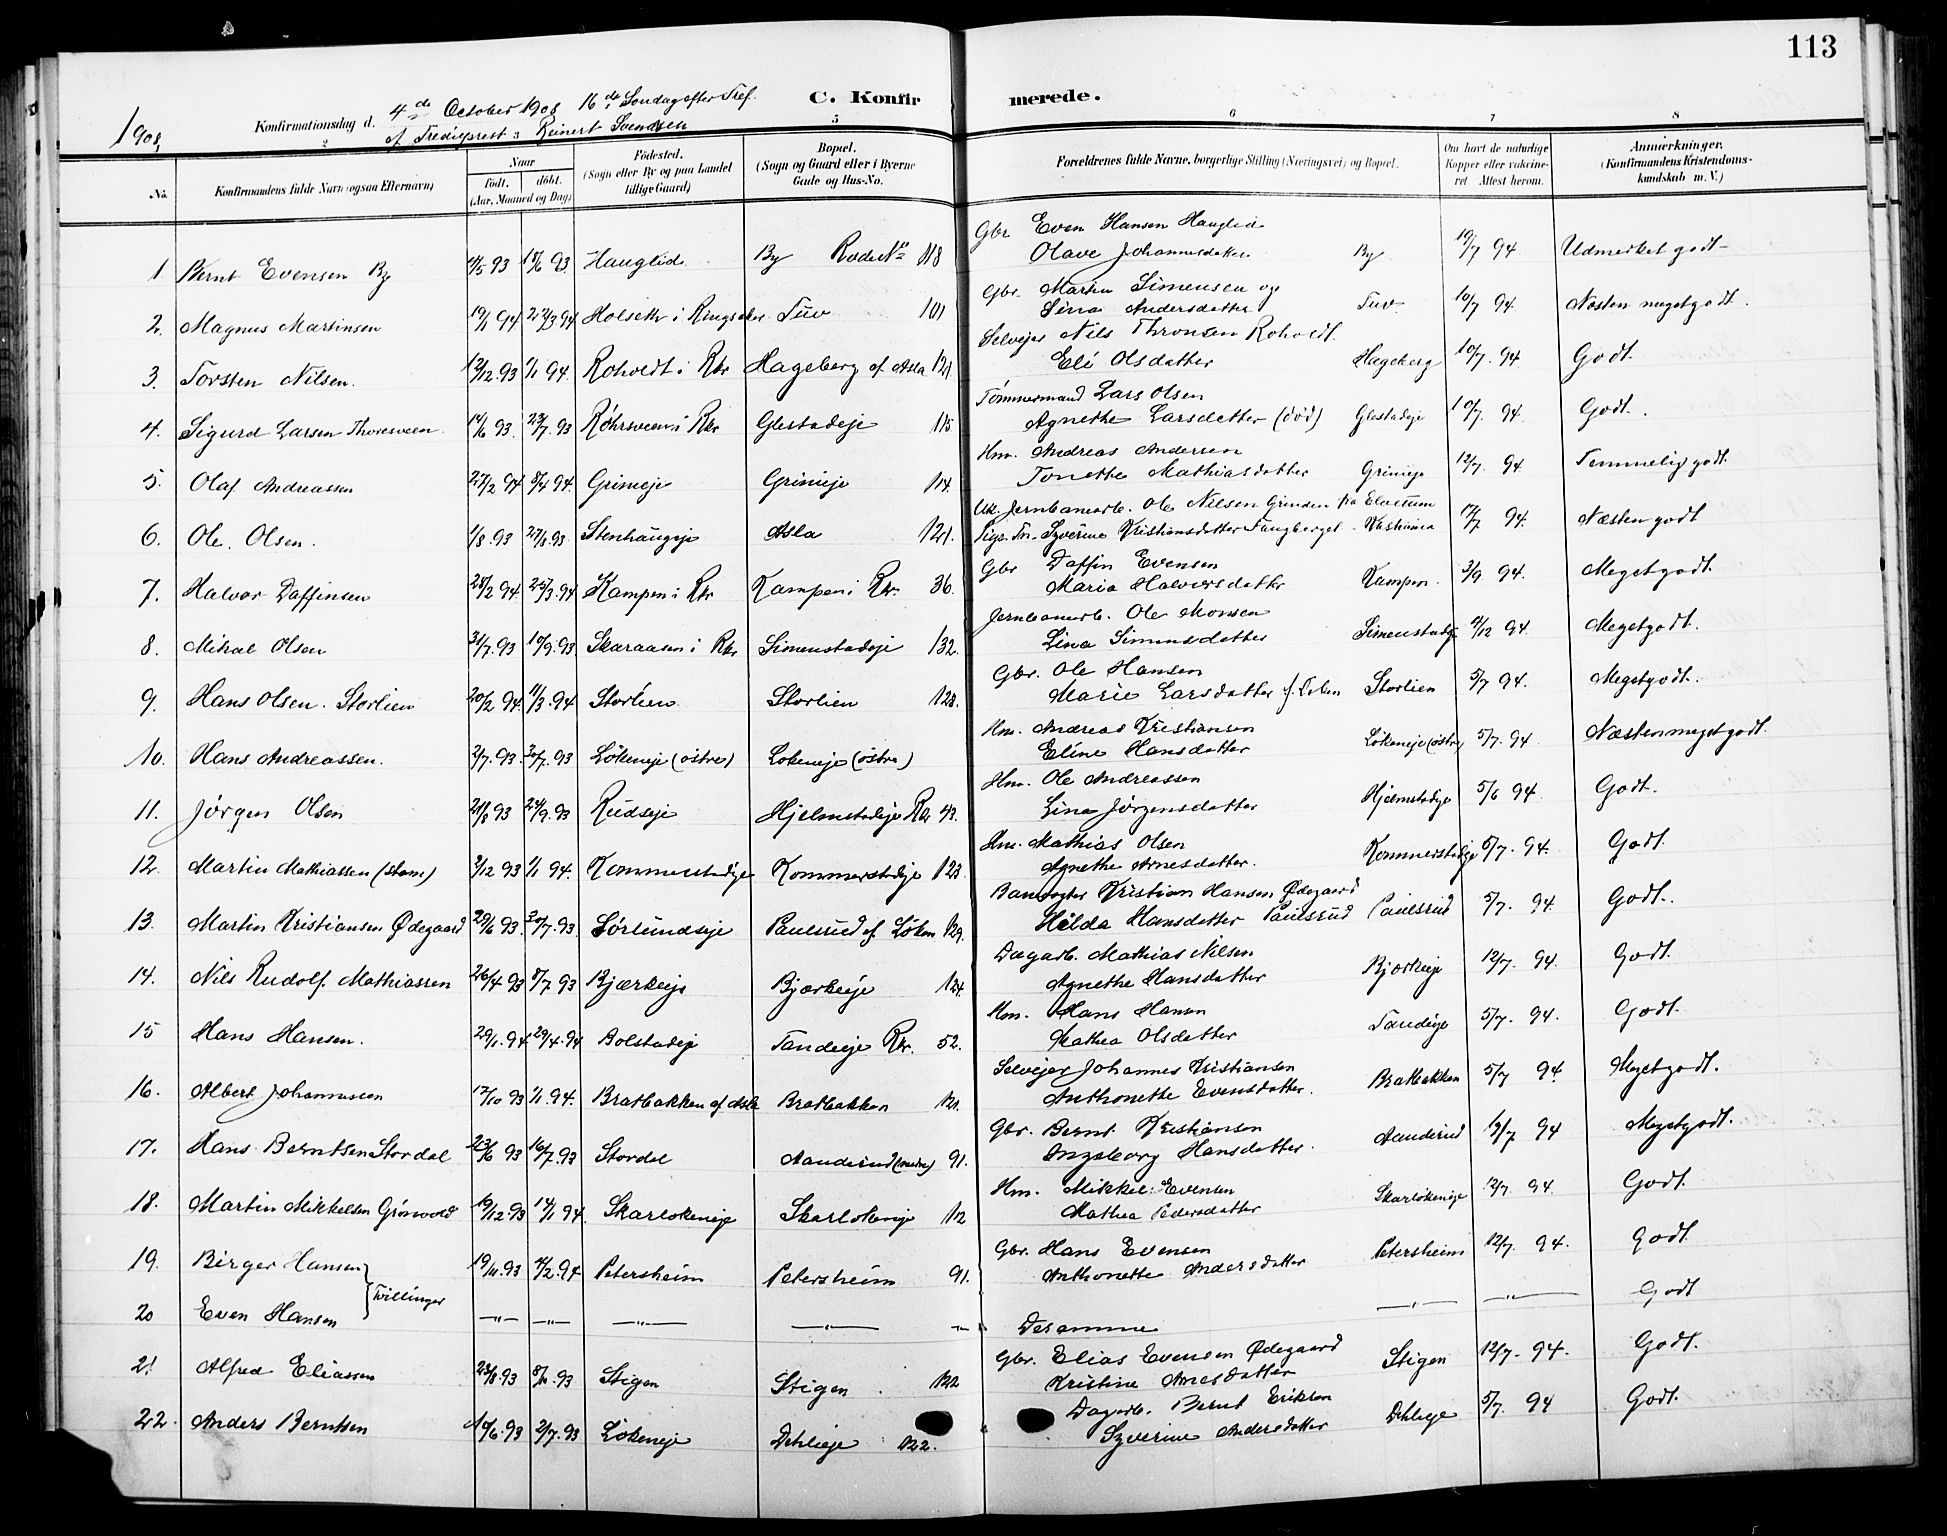 113
1908
Konfirmationsdag d. 4de October 1908 16de Søndag efter Tref. C. Konfirmerede.
af Tredieprest Reinert Svendsen
2 5 6 7 8
No. Konfirmandens fulde Navn (ogsaa Efternavn) Naar født. døbt. (Aar, Maaned og Dag) Fødested. (Sogn eller By og paa Landet tillige Gaard) Bopæl. (Sogn og Gaard eller i Byerne Gade og Hus-No. Forældrenes fulde Navne, borgerlige Stilling (Næringsvei) og Bopæl. Om havt de naturlige Kopper eller vaccineret Attest herom. Anmærkninger. (Konfirmandens Kristendomskundskab m. V.)
1 Bernt Evensen By 4/5 93 18/6 93 Hauglid By Rode No 118 Gbr Even Hansen Hauglid
Olave Johannesdatter By 19/7 94 Udmerket godt
2. Magnus Martinsen 19/1 94 22/3 94 Holseth i Ringsaker Tuv 101 Gbr. Martin Simensen og
Lina Andersdatter Tuv 10/7 94. Næsten meget godt.
3. Torsten Nilsen. 12/12 93 1/1 94. Roholdt i Rkr Hageberg af Asla 121 Selvejer Nils Thronsen Roholdt.
Eli Olsdatter Hageberg 10/7. 94. Godt.
4. Sigurd Larsen Thoresveen 14/6 93. 23/7. 93 Røhrsveen i Rkr Glestadeje 115 Tømmermand Lars Olsen
Agnethe Larsdatter (død) Glestadeje 10/7. 94. Godt.
5. Olaf Andreassen 27/2 94 8/4 94. Grimeje Grimeje 114. Hm. Andreas Andersen
Tonette Mathiasdatter Grimeje 12/7. 94 Temmelig godt.
6. Ole Olsen. 1/8. 93 27/8. 93. Stenhaugeje Asla 121. Uk. Jernbanearb. Ole Nilsen Grinden fra Elverum
Pige Tn. Syverine Kristiansdatter Fangberget 94. Næsten godt
7. Halvor Daffinsen 28/2 94. 26/3. 94 Kampen i Rkr Kampen i Rkr. 36. Gbr Daffin Evensen
Maria Halvorsdatter Kampen 3/9 94. Meget godt.
8. Mikal Olsen 31/7. 93 10/9. 93 Skaraasen i Rkr Simenstadeje 132. Jernbanearb. Ole Monsen
Lina Simensdatter Simenstadeje 4/12 94. Meget godt.
9. Hans Olsen Storlien 20/2 94. 11/3. 94 Storlien Storlien 128. Gbr. Ole Hansen
Marie Larsdatter Storlien 5/7 94. Meget godt.
10. Hans Andreassen. 2/7. 93. 30/7. 93 Løkeneje (østre) Løkeneje (østre) Hm. Andreas Kristiansen
Eline Hansdatter Løkeneje (østre) 5/7. 94. Næsten meget godt.
11. Jørgen Olsen 21/8 93 24/9. 93 Rudseje Hjelmstadeje Rkr 43. Hm. Ole Andreassen
Lina Jørgensdatter Hjelmstadeje 5/6 94. Godt.
12. Martin Mathiassen (Stam) 3/12 93 1/1 94. Kommerstadeje Kommerstadeje 123. Hm. Mathias Olsen
Agnethe Arnesdatter. Kommerstadeje 5/7. 94. Godt.
13. Martin Kristiansen Ødegaard 29/6 93. 30/7. 93 Sørlundseje Paulsrud af Løken 129. Banvogter Kristian Hansen Ødegaard
Hilda Hansdatter Paulsrud Paulsrud 5/7. 94. Godt.
14. Nils Rudolf Mathiassen 26/4 93 8/7. 93 Bjærkeeje Bjærkeeje 124. Dagarb. Mathias Nilsen
Agnethe Hansdatter Bjærkeeje 12/7. 94. Godt.
15 Hans Hansen. 29/1. 94 29/4. 94 Bolstadeje Tandeeje Rkr. 52. Hm. Hans Hansen
Mathea Olsdatter Tandeeje 5/7. 94. Godt.
16. Albert Johannessen 17/10 93 1/1. 94. Bratbakken af Asla Bratbakken 121. Selvejer Johannes Kristiansen
Anthonette Evensdatter. Bratbakken 5/7 94 Meget godt.
17. Hans Berntsen Stordal 23/6 93 16/7. 93 Stordal Aanderud (nedre) 91. Gbr. Bernt Kristiansen
Ingeborg Hansdatter. Aanderud 12/7 94 Meget godt.
18. Martin Mikkelsen Grønvold 19/12 93 14/1 94. Skarlokeneje Skarlokeneje 112 Hm. Mikkel Evensen
Mathea Pedersdatter Skarlokeneje 12/7. 94 Godt.
19. Birger Hansen 19/11. 93 4/2. 94 Petersheim Petersheim 91. Gbr. Hans Evensen
Anthonette Andersdatter Petersheim 12/7. 94. Godt
Tvillinger
20 Even Hansen —"— —"— —"— —"— —"— Desamme —"— —"— Godt
21 Alfred Eliassen 23/8. 93 93 Stigen Stigen 122 Gbr. Elias Evensen Ødegaard
Kristine Arnesdatter Stigen 12/7. 94. Godt.
22. Anders Berntsen 10/6. 93 2/7. 93 Løkeneje Dehlieje 122. Dagarb. Bernt Eriksen
Syverine Andersdatter Dehlieje 5/7. 94 Godt.